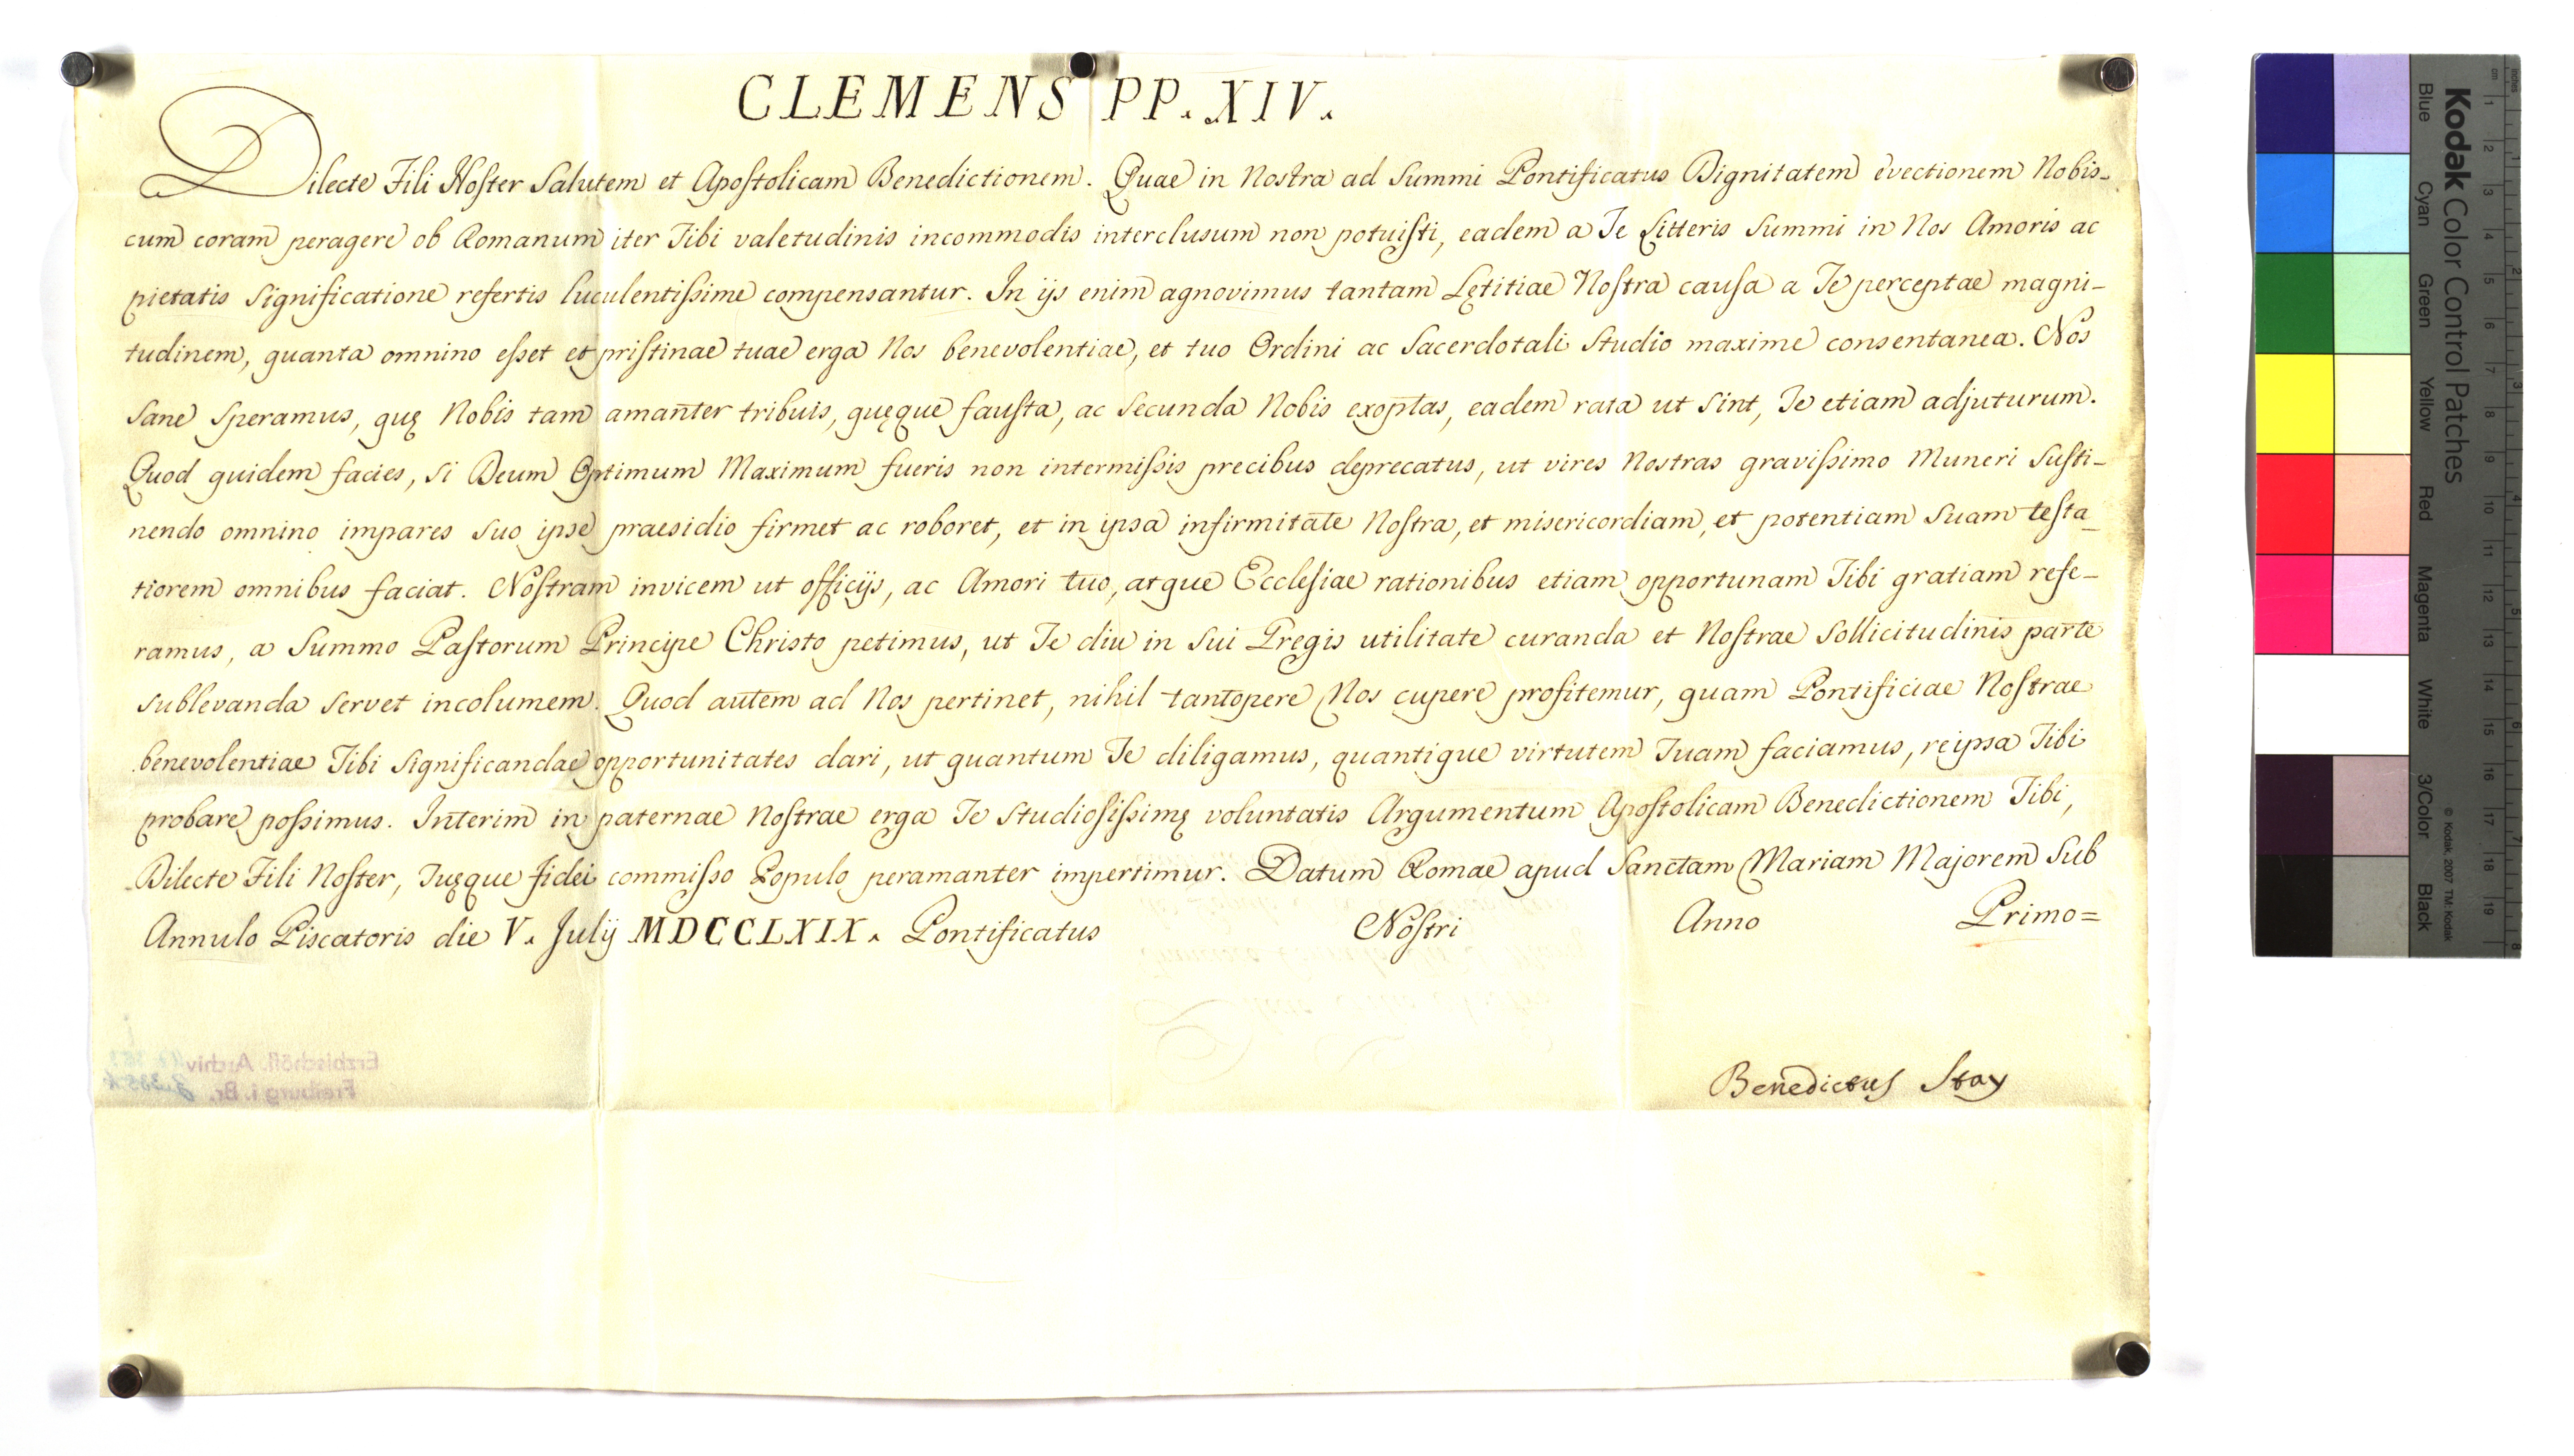 CLEMENS PP. XIV.
Dilecte Fili Noster Salutem et Apostolicam Benedictionem. Quae in Nostra ad Summi Pontificatus Dignitatem evectionem Nobis-
cum coram peragere ob Romanum iter Tibi valetudinis incommodis interclusum non potuisti, eadem a Te Litteris Summi in Nos Amoris ac
pietatis significatione refertis luculentissime compensantur. In ijs enim agnovimus tantam Lętitiae Nostra causa a Te perceptae magni-
tudinem, quanta omnino esset et pristinae tuae erga Nos benevolentiae, et tuo Ordini ac Sacerdotali Studio maxime consentanea. Nos
Sane Speramus, quę Nobis tam amanter tribuis, quęque fausta, ac Secunda Nobis exoptas, eadem rata ut sint, Te etiam adjuturum.
Quod quidem facies, si Deum Optimum Maximum fueris non intermissis precibus deprecatus, ut vires Nostras gravissimo Muneri Susti-
nendo omnino impares suo ipse praesidio firmet ac roboret, et in ipsa infirmitate Nostra, et misericordiam, et potentiam Suam testa-
tiorem omnibus faciat. Nostram invicem ut officijs, ac Amori tuo, atque Ecclesiae rationibus etiam opportunam Tibi gratiam refe-
ramus, a Summo Pastorum Principe Christo petimus, ut Te diu in Sui Gregis utilitate curanda et Nostrae Sollicitudinis parte
sublevanda servet incolumem. Quod autem ad Nos pertinet, nihil tantopere Nos cupere profitemur, quam Pontificiae Nostrae
benevolentiae Tibi significandae opportunitates dari, ut quantum Te diligamus, quantique virtutem Tuam faciamus, reipsa Tibi
probare possimus. Interim in paternae Nostrae erga Te studiosissimę voluntatis Argumentum Apostolicam Benedictionem Tibi,
Dilecte Fili Noster, Tuęque fidei commisso Populo peramanter impertimur. Datum Romae apud Sanctam Mariam Majorem Sub
Annulo Piscatoris die V. Julij MDCCLXIX. Pontificatus Nostri Anno Primo=
Benedictus Stay
Erzbischöfl. Archiv
Freiburg i. Br.
Kodak Color Control Patches
Blue Cyan Green Yellow Red Magenta White 3/Color Black
© Kodak, 2007 TM: Kodak
cm 1 2 3 4 5 6 7 8 9 10 11 12 13 14 15 16 17 18 19
inches 1 2 3 4 5 6 7 8